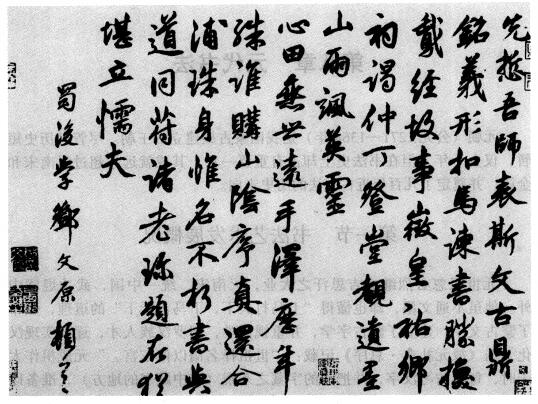 先哲吾師表斯文古鼎
銘義形扣馬諫書勝換
鵞經故事徵皇祐鄉
祠謁仲丁登堂觀遺墨
山雨颯英靈
心田無世遠手澤歷年
殊誰購山陰序真還合
浦珠身惟名不朽書與
道同符諸老珍題在猶
堪立懦夫
蜀後學鄧文原頓首